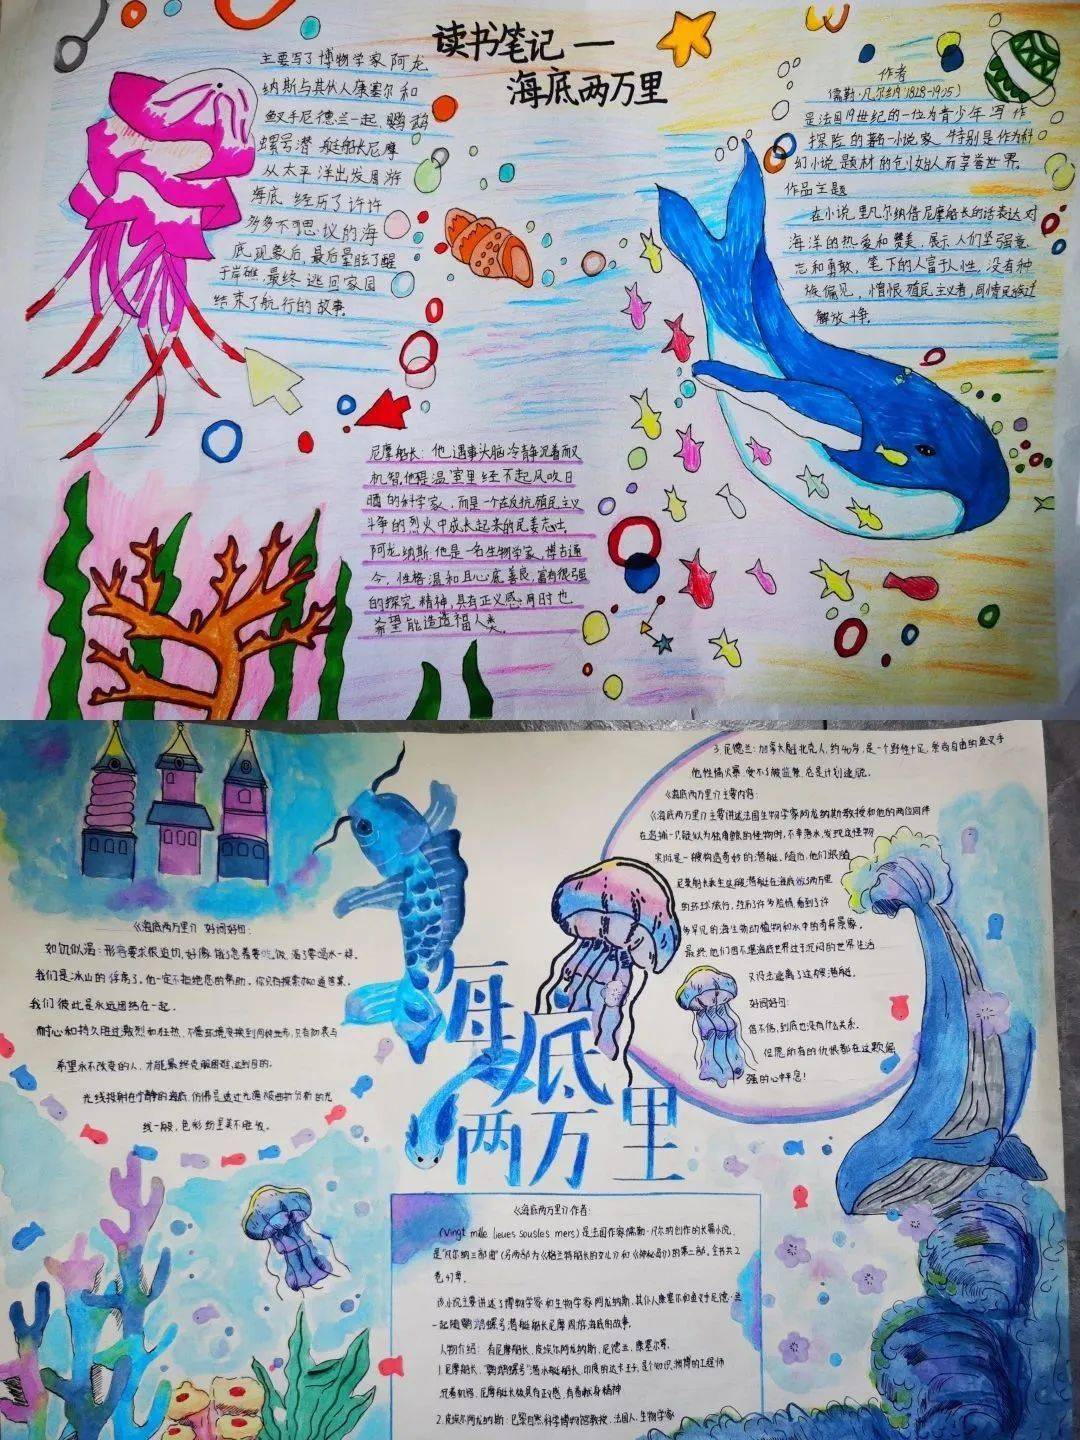 读书笔记—
海底两万里
主要写了博物学家阿龙
纳斯与其仆人康塞尔和
鱼叉手尼德兰一起 鹦鹉
螺号潜艇船长尼摩
从太平洋出发周游
海底 经历了许许
多多不可思议的海
底现象后,最后晕眩了醒
于岸礁,最终逃回家园
结束了航行的故事。
作者
儒勒·凡尔纳(1828-1905)
是法国19世纪的一位为青少年写作
探险的著名小说家 特别是作为科
幻小说题材的创始人而享誉世界。
作品主题
在小说里凡尔纳借尼摩船长的话表达对
海洋的热爱和赞美,展示人们坚强意
志和勇敢,笔下的人富于人性,没有种
族偏见,憎恨殖民主义者,同情民族过
解放斗争。
尼摩船长:他遇事头脑冷静沉着而又
机智,他 温室里经不起风吹日
晒的科学家,而是一个在反抗殖民主义
斗争的烈火中成长起来的民姜志士。
阿龙纳斯 他是一名生物学家,博古通
今,性格温和且心底善良,富有很强
的探究精神,具有正义感.同时也
希望能造福人类。
3.尼德兰:加拿大魁北克人,约40岁,是一个野性十足,崇尚自由的鱼叉手
他性情火暴,受不了被监禁,总是计划逃脱。
《海底两万里》主要内容:
《海底两万里》主要讲述法国生物学家阿龙纳斯教授和他的两位同伴
在追捕一只疑似为独角鲸的怪物时,不幸落水,发现这怪物
实际是一艘构造奇妙的潜艇。随后,他们跟随
尼莫船长乘坐这艘潜艇在海底做了两万里
的环球旅行,经历了许多险情,看到了许
多罕见的海生动植物和水中的奇异景象。
最终,他们因不堪海底世界过于沉闷的世界生活
又设法逃离了这艘潜艇。
好词好句:
信不信,到底也没有什么关系。
但愿所有的仇恨都在这颗倔
强的心中平息!
《海底两万里》好词好句:
如饥似渴:形容要求很迫切,好像饿了急着要吃饭,渴了要喝水一样。
我们是冰山的俘虏了。
我们彼此是永远团结在一起。
耐心和持久胜过激烈和狂热,不管环境变换到何种地步,只有初衷与
希望永不改变的人,才能最终克服困难,达到目的。
光线投射在宁静的海底,仿佛是透过九道 分析的光
线一般,色彩纷呈美不胜收。
海底
两万里
《海底两万里》作者:
(Vingt mille lieues sousles mers)是法国作家儒勒·凡尔纳创作的长篇小说,
是“凡尔纳三部曲”(另两部为《格兰特船长的女儿》和《神秘岛》)的第二部。全书共2
卷47章。
该小说主要讲述了博物学家和生物学家阿龙纳斯,其仆人康塞尔和鱼叉手尼德·兰
一起随鹦鹉螺号潜艇船长尼摩周游海底的故事。
人物介绍:有尼摩船长、皮埃尔阿龙纳斯、尼德兰、康塞尔等。
1.尼摩船长:“鹦鹉螺号”潜水艇艇长,印度的达卡王子,是个知识渊博的工程师
沉着机智,尼摩艇长极具有正义感,有着献身精神
2.皮埃尔阿龙纳斯:巴黎自然科学博物馆教授,法国人,生物学家